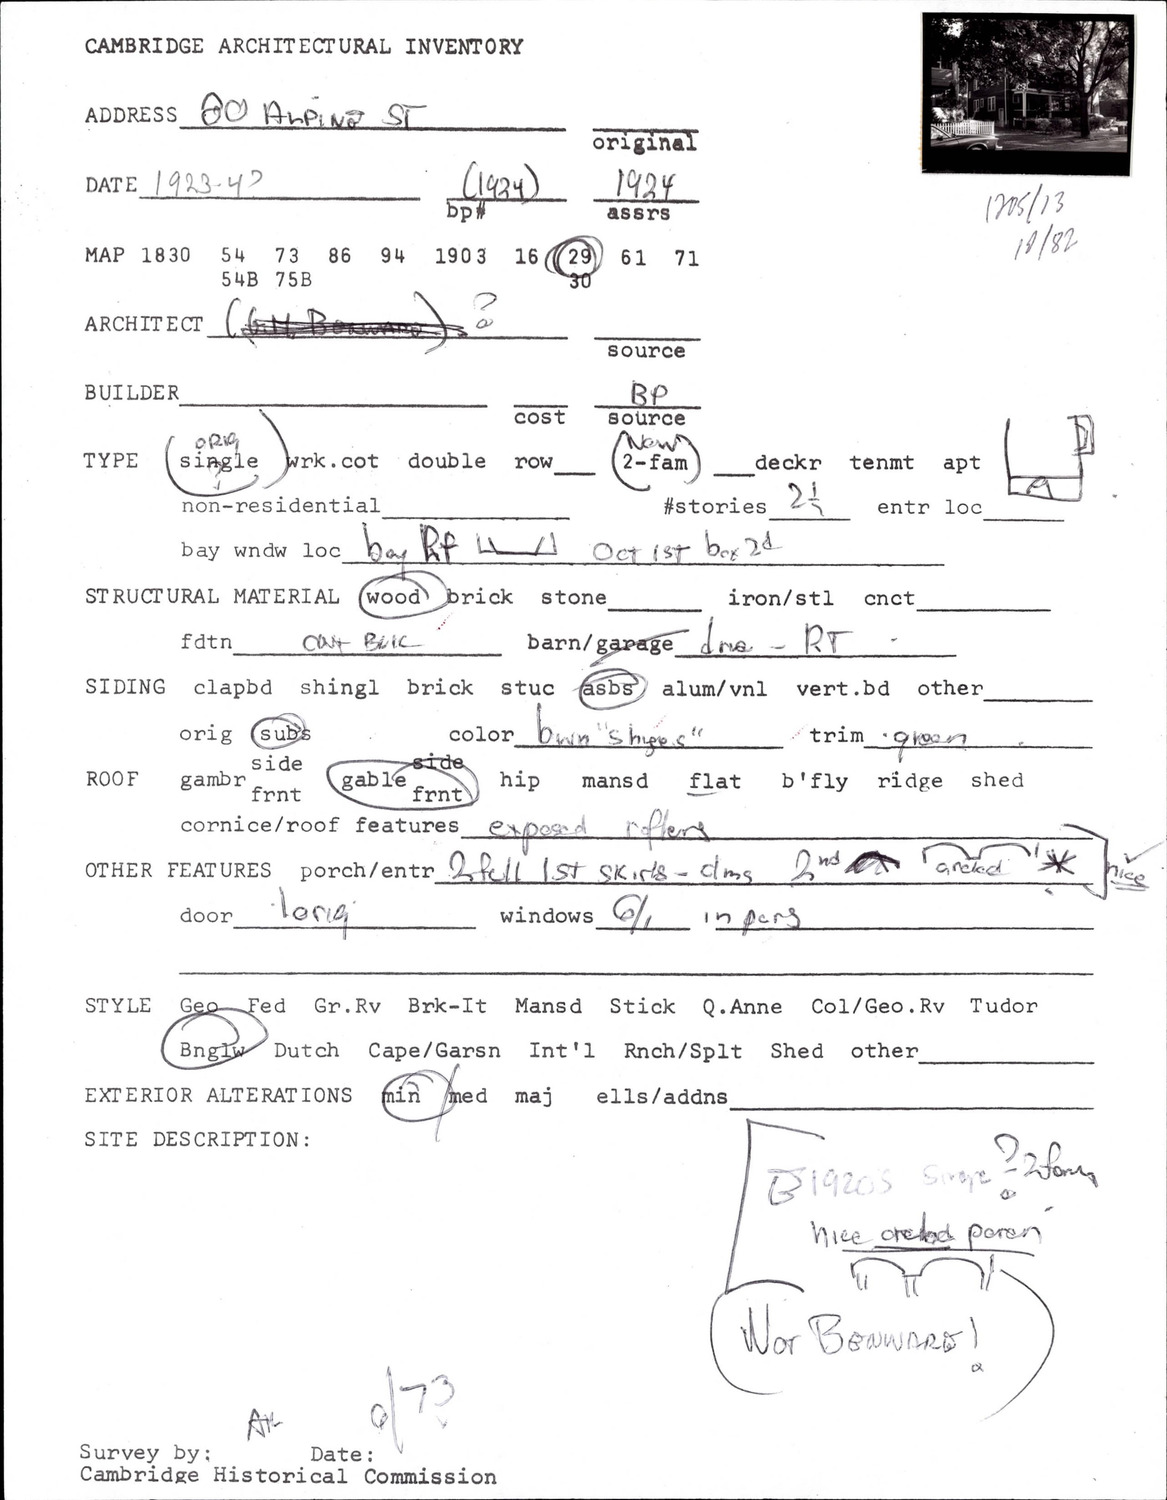 CAMBRIDGE ARCHITECTURAL INVENTORY
ADDRESS 80 ALPINE ST
original
DATE 1923-4? (1924) 1924
bp# assrs
1205/13
10/82
MAP 1830 54 73 86 94 1903 16 29 61 71
54B 75B 30
ARCHITECT (G.H. BENWARE) ?
source
BUILDER BP
cost source
ORIG (New)
TYPE single wrk.cot double row 2-fam deckr tenmt apt
non-residential #stories 2½ entr loc
bay wndw loc bay RF Oct 1st box 2d
STRUCTURAL MATERIAL wood brick stone iron/stl cnct
fdtn barn/garage dna - RT
SIDING clapbd shingl brick stuc asbs alum/vnl vert.bd other
orig subs color trim green
side side
ROOF gambr gable hip mansd flat b'fly ridge shed
frnt frnt
cornice/roof features exposed rafters
OTHER FEATURES porch/entr 2 full 1st skirts - 2nd arcaded nice
door 1 orig windows 6/1 in pars
STYLE Geo Fed Gr.Rv Brk-It Mansd Stick Q.Anne Col/Geo.Rv Tudor
Bnglw Dutch Cape/Garsn Int'l Rnch/Splt Shed other
EXTERIOR ALTERATIONS min med maj ells/addns
SITE DESCRIPTION:
1920s single? - 2 fam
nice arcaded porch
NOT BENWARE!
/73
Survey by: Date:
Cambridge Historical Commission